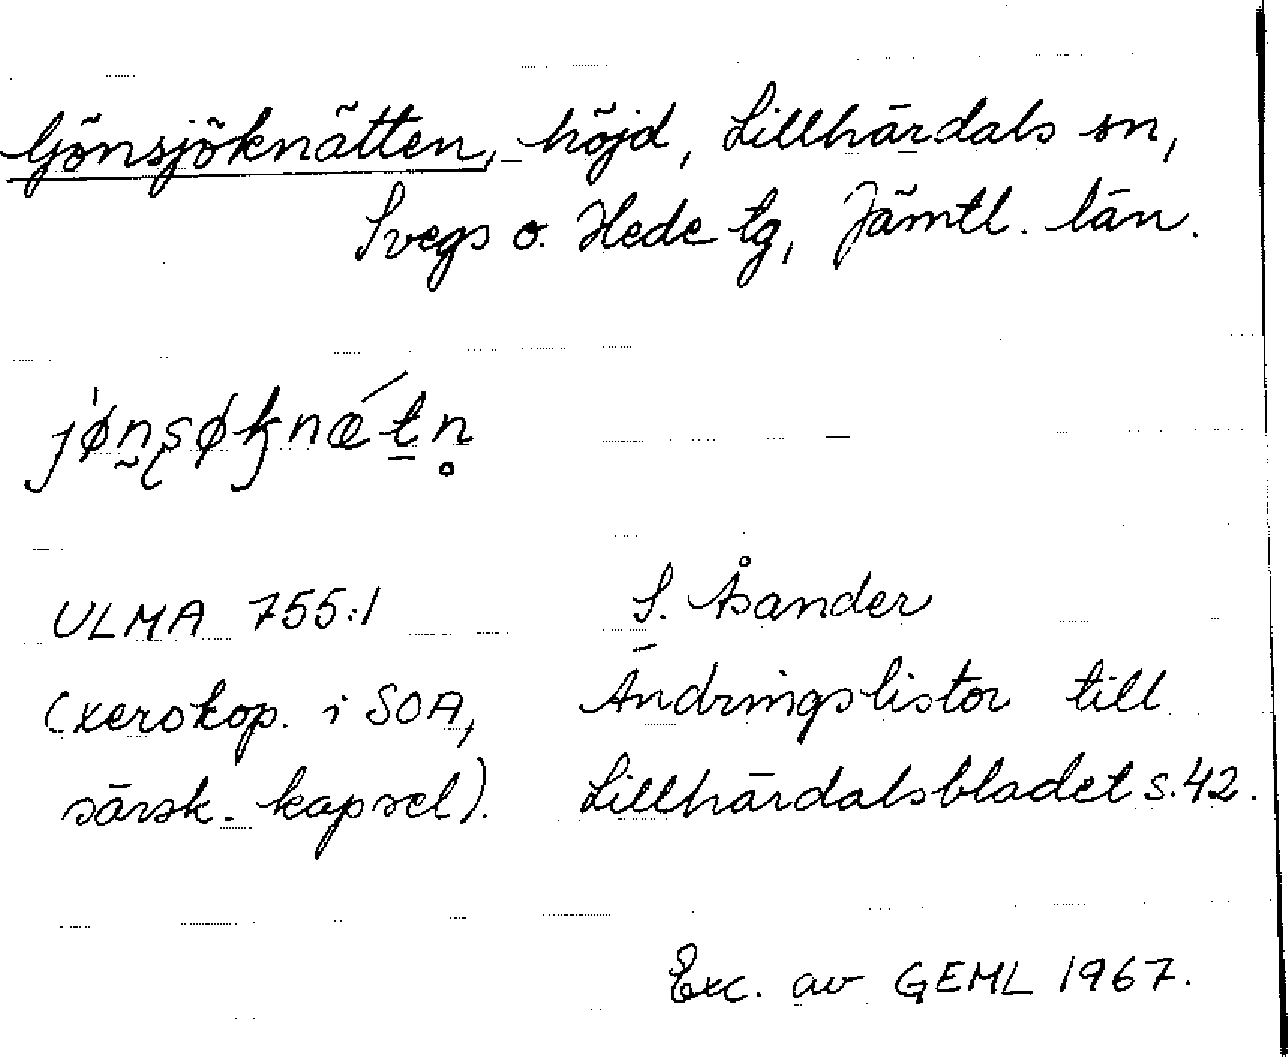 Gönsjöknätten, höjd, Lillhärdals sn,
Svegs o. Hede tg, Jämtl. län.
jǿn̰ʂøk̡næ´t̠n̥
ULMA 755:1 S. Åsander
(xerokop. i SOA, Ändringslistor till
särsk. kapsel). Lillhärdalsbladet s. 42.
Exc. av GEML 1967.